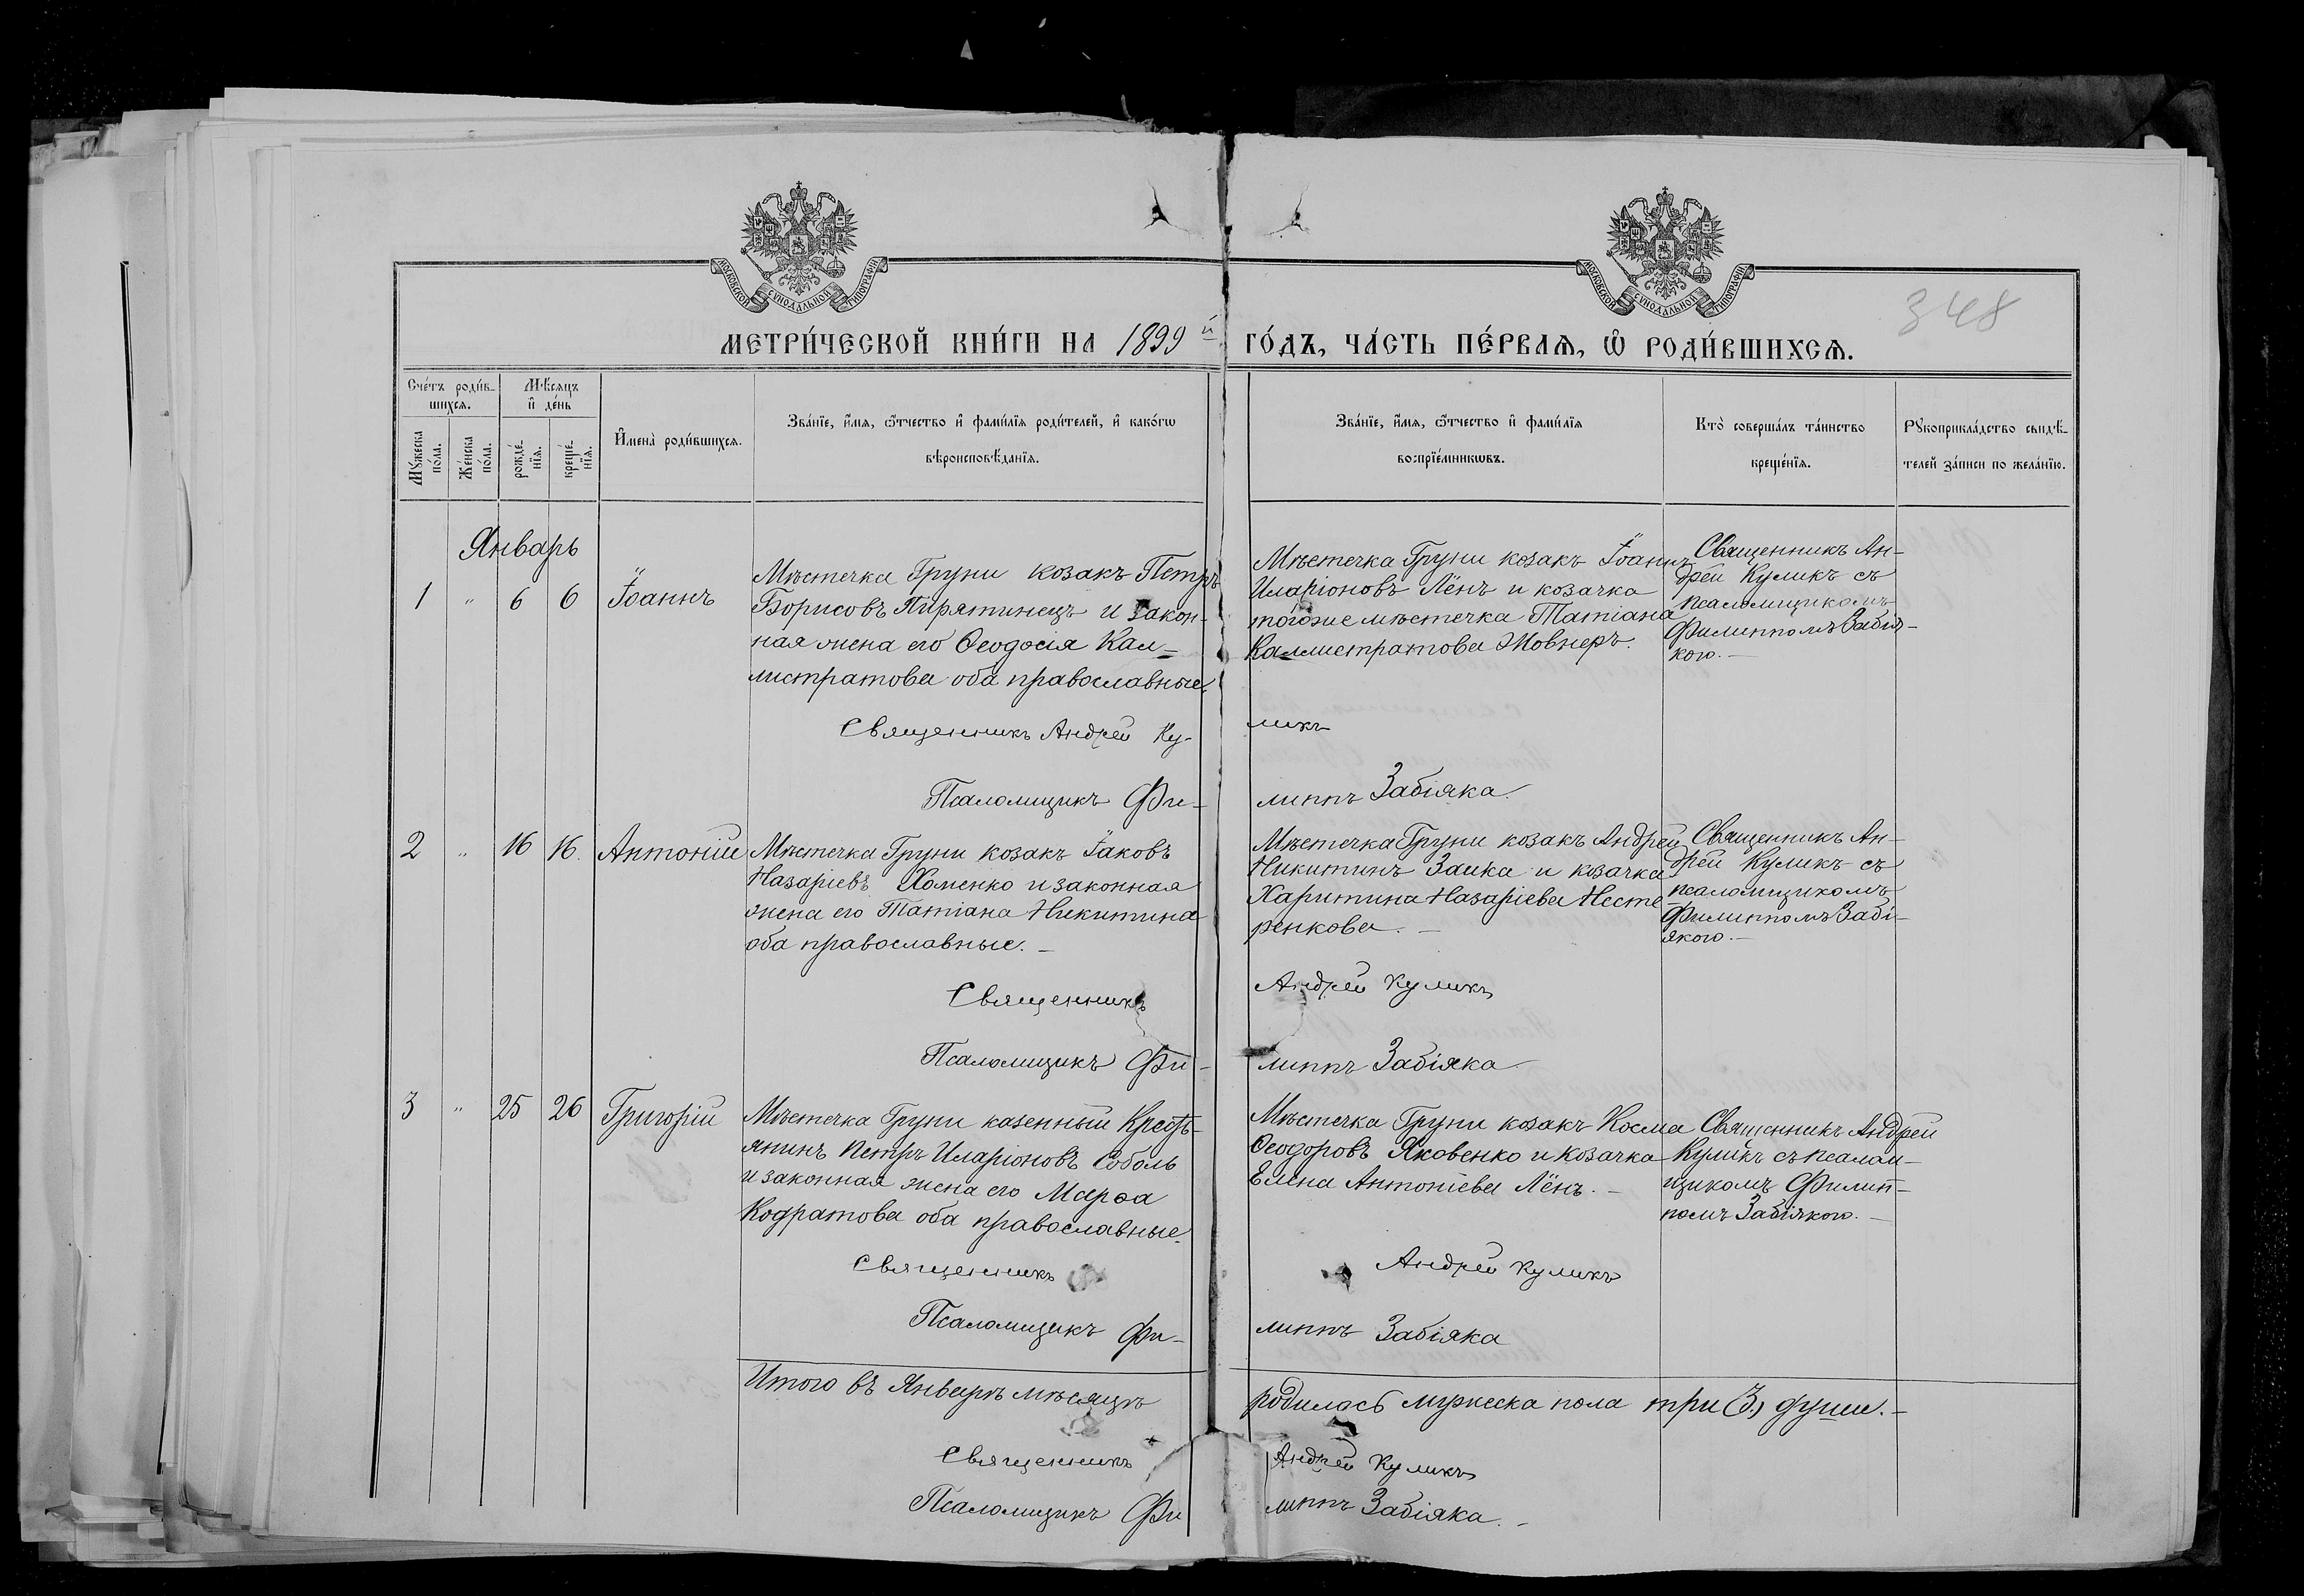 МОСКОВСКОЙ СѴНОДАЛЬНОЙ ТИПОГРАФІИ
МОСКОВСКОЙ СѴНОДАЛЬНОЙ ТИПОГРАФІИ
348
МЕТРИ́ЧЕСКОЙ КНИ́ГИ НА 1899й ГО́ДЪ, ЧА́СТЬ ПЕ́РВАѦ, Ѡ РОДИ́ВШИХСѦ.
Сче́тъ роди́в-
шихсѧ.
Мѣ́сѧцъ
и҆ де́нь
Мꙋ́жеска
по́ла.
Же́нска
по́ла.
рожде́-
нїѧ.
креще́-
нїѧ.
И҆мена̀ роди́вшихсѧ.
Зва́нїе, и҆́мѧ, ѻ҆́тчество и҆ фами́лїѧ роди́телей, и҆ како́гѡ
вѣроисповѣ́данїѧ.
Зва́нїе, и҆́мѧ, ѻ҆́тчество и҆ фами́лїѧ
воспрїе́мникѡвъ.
Кто̀ соверша́лъ та́инство
креще́нїѧ.
Рꙋкоприкла́дство свидѣ́-
телей за́писи по жела́нїю.
Январь
1 " 6 6 Іоаннъ
Мѣстечка Груни козакъ Петръ
Борисовъ Пирятинецъ и закон-
ная жена его Ѳеодосія Кал-
листратова оба православные.
Мѣстечка Груни козакъ Іоаннъ
Иларіоновъ Лёнъ и козачка
тогоже мѣстечка Татіана
Каллистратова Жовнеръ.
Священникъ Ан-
дрей Куликъ съ
псаломщикомъ
Филиппомъ Забія-
кою.—
Священникъ Андрей Ку-
ликъ
Псаломщикъ Фи-
липпъ Забіяка.
2 " 16 16. Антоній
Мѣстечка Груни козакъ Іаковъ
Назаріевъ Хоменко и законная
жена его Татіана Никитина
оба православные.—
Мѣстечка Груни козакъ Андрей
Никитинъ Заика и козачка
Харитина Назаріева Несте-
ренкова.—
Священникъ Ан-
дрей Куликъ съ
псаломщикомъ
Филиппомъ Забі-
якою.—
Священникъ
Андрей Куликъ
Псаломщикъ Фи-
липпъ Забіяка
3 " 25 26 Григорій
Мѣстечка Груни казенный Кресть-
янинъ Петръ Иларіоновъ Соболь
и законная жена его Марѳа
Кодратова оба православные.
Мѣстечка Груни козакъ Косма
Ѳеодоровъ Яковенко и козачка
Елена Антоніева Лёнъ.—
Священникъ Андрей
Куликъ съ псалом-
щикомъ Филип-
помъ Забіякою.—
Священникъ
Андрей Куликъ
Псаломщикъ Фи-
липпъ Забіяка
Итого въ Январѣ мѣсяцѣ
родилось мужеска пола три (3) души.—
Священникъ
Андрей Куликъ
Псаломщикъ Фи
липпъ Забіяка.—